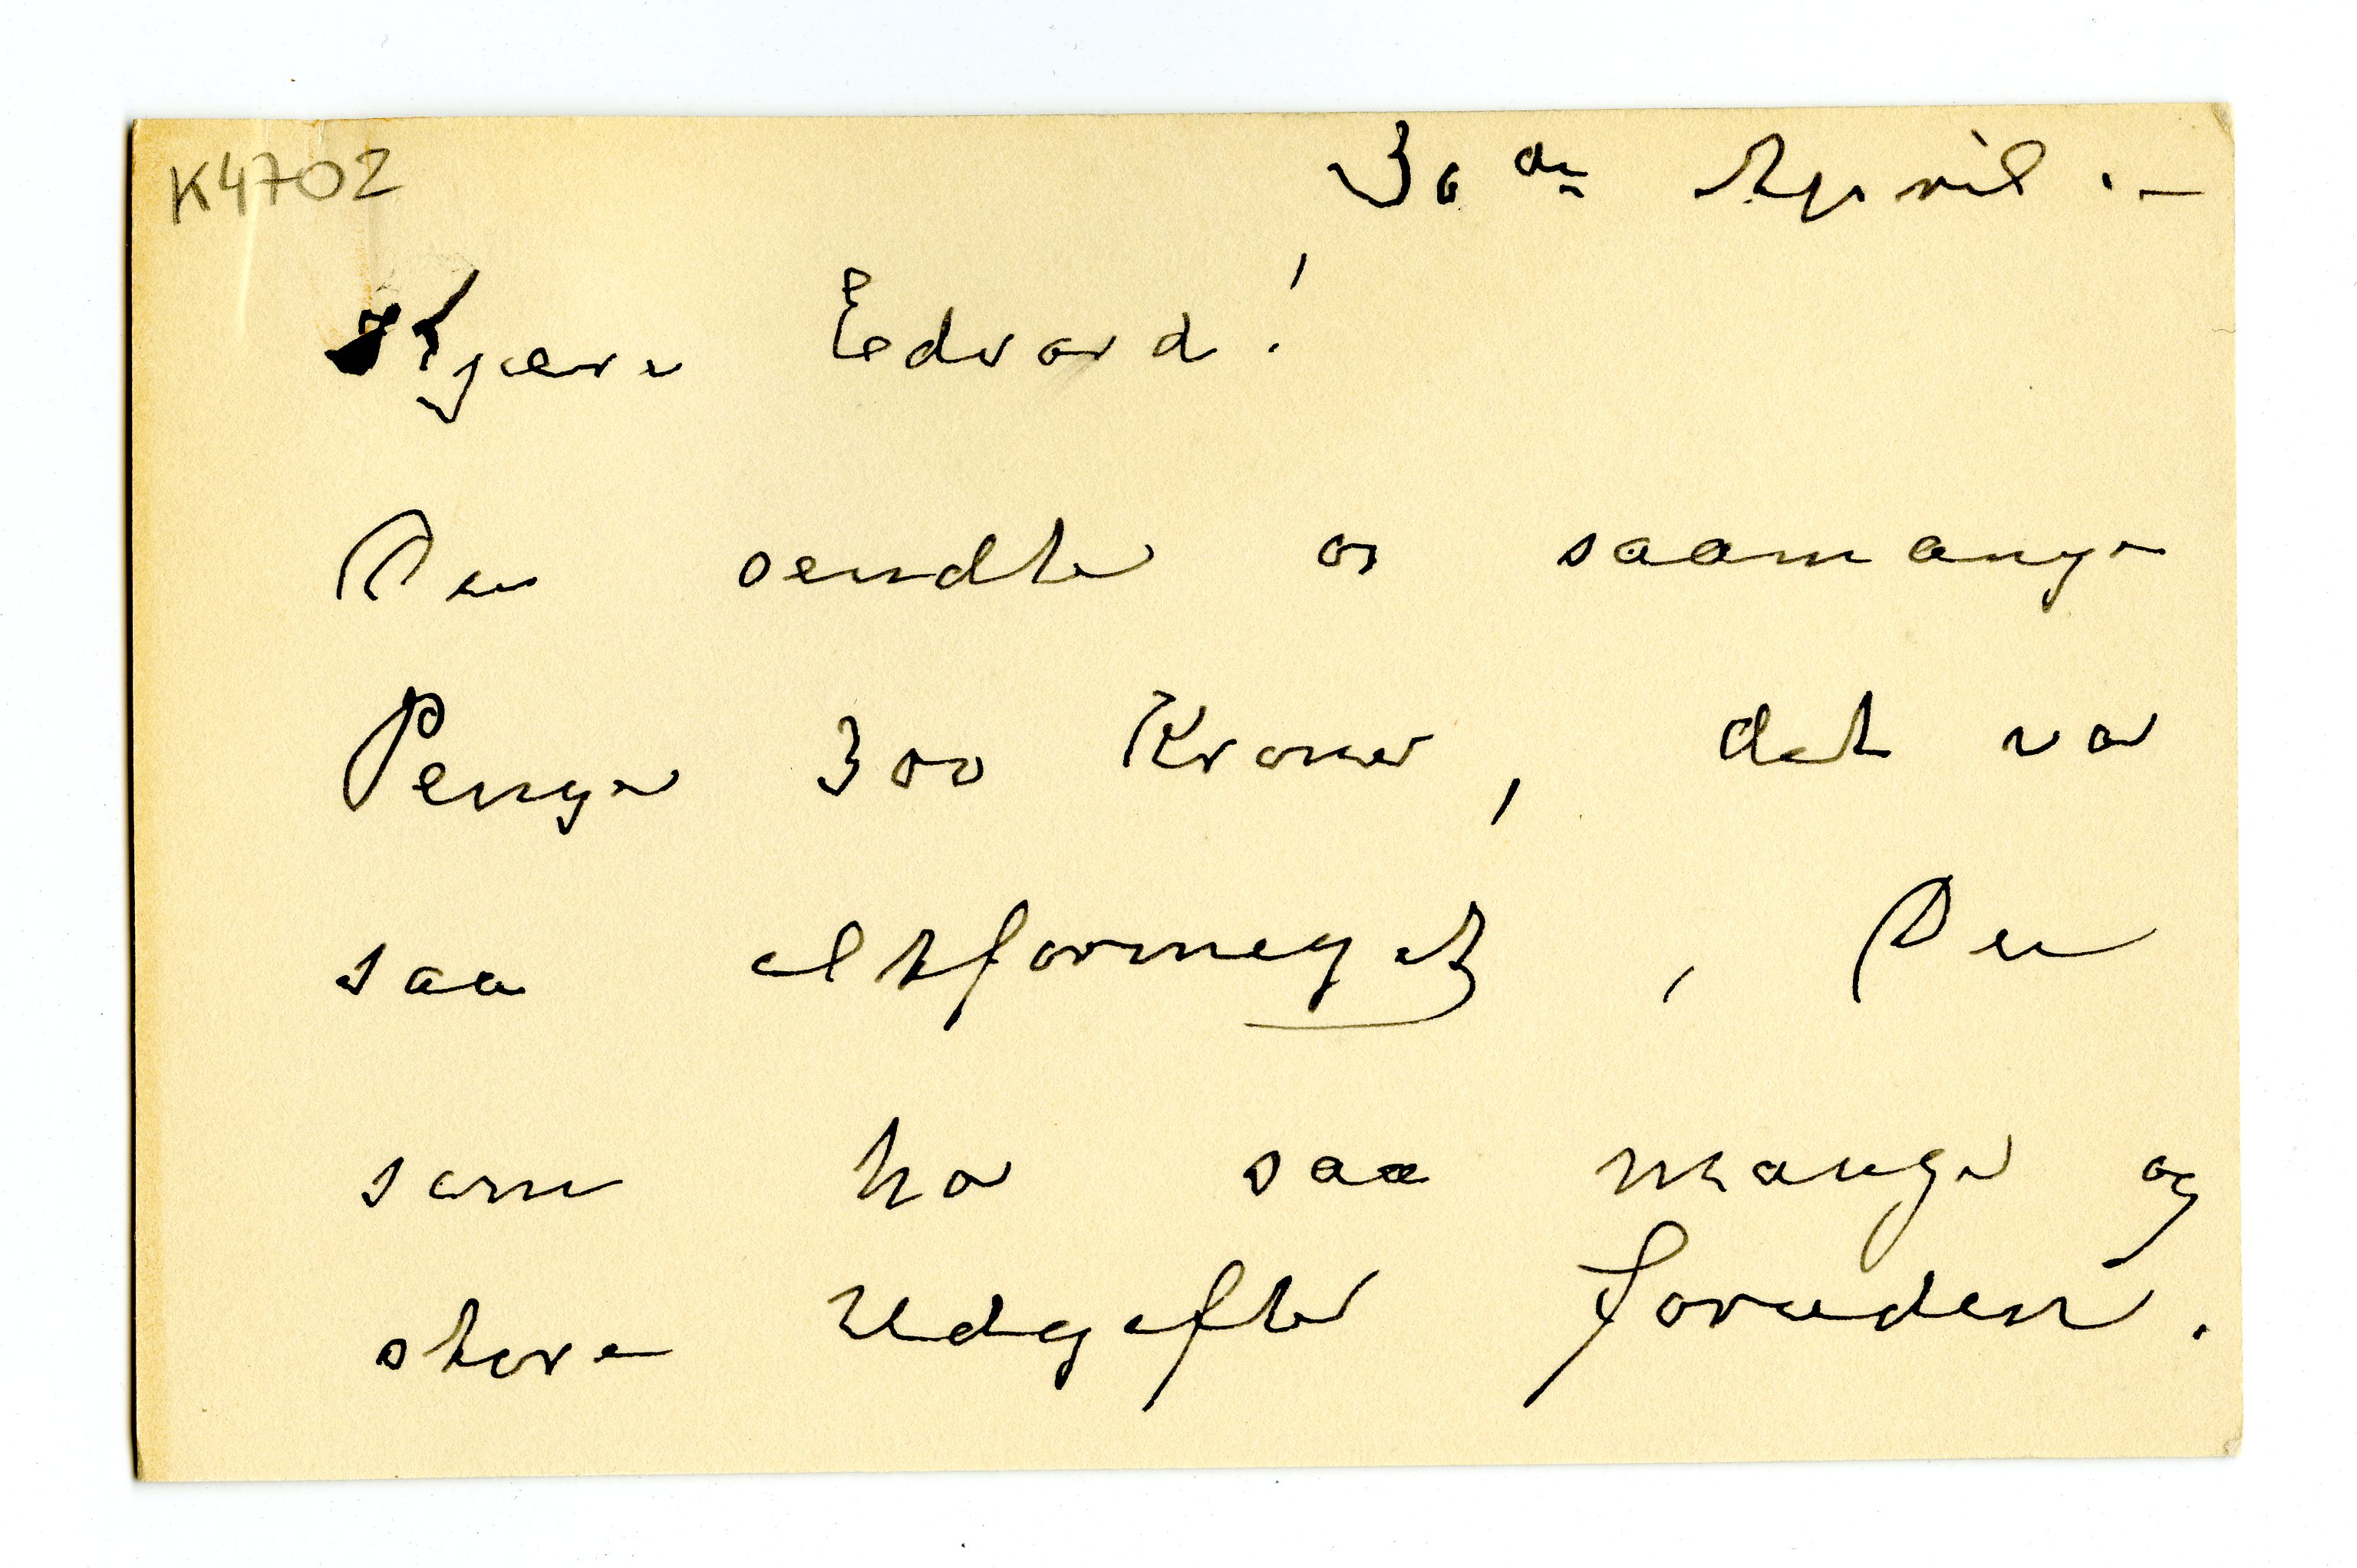 K4702
30 den April. –
Kjære Edvard!
Du sendte os saamange
Penge 300 Kroner, det var
saa altformeget, Du
som har saa mange og
store Udgifter foruden.